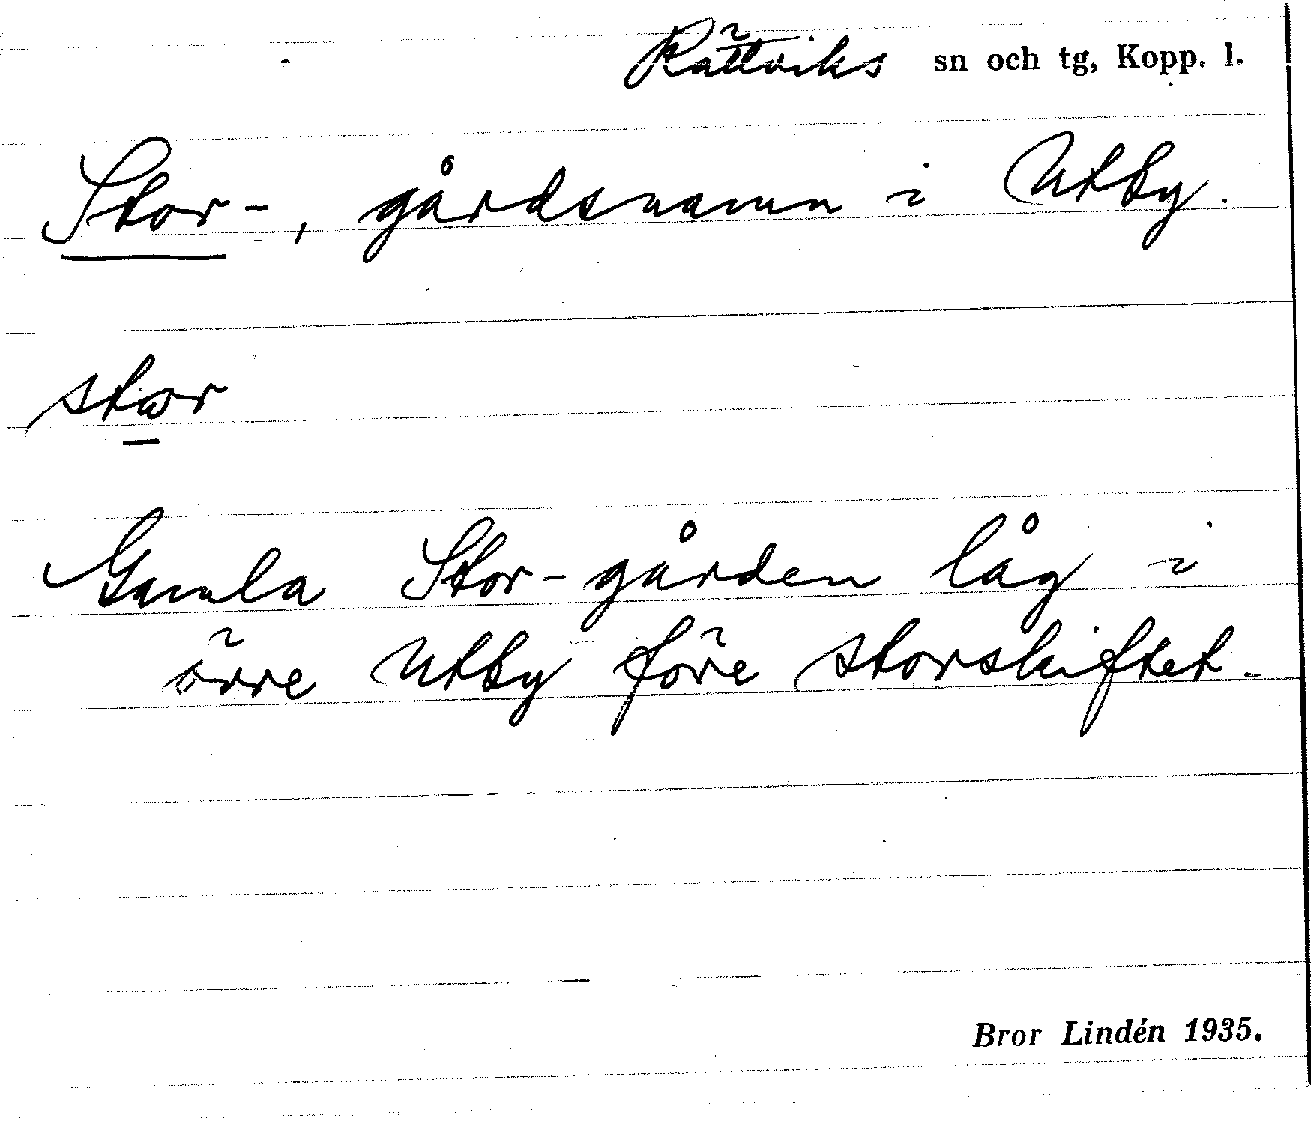 Rättviks sn och tg, Kopp. l.
Stor-, gårdsnamn i Utby.
stωr
Gamla Stor-gården låg i
övre Utby före storskiftet.
Bror Lindén 1935.